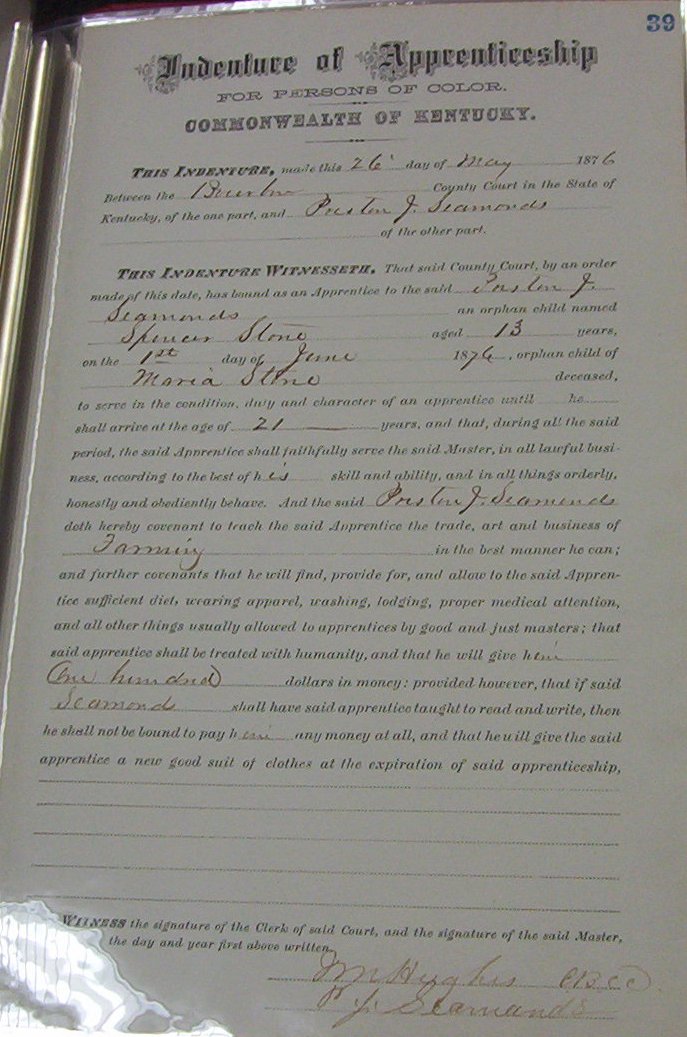 39
Indenture of Apprenticeship
FOR PERSONS OF COLOR.
COMMONWEALTH OF KENTUCKY.
THIS INDENTURE, made this 26 day of May 1876
Between the Bourbon County Court in the State of
Kentucky, of the one part, and Preston J. Seamonds
of the other part.
THIS INDENTURE WITNESSETH, That said County Court, by an order
made of this date, has bound as an Apprentice to the said Preston J.
Seamonds an orphan child named
Spencer Stone aged 13 years,
on the 1st day of June 1876, orphan child of
Maria Stone deceased,
to serve in the condition, duty and character of an apprentice until he
shall arrive at the age of 21 years, and that, during all the said
period, the said Apprentice shall faithfully serve the said Master, in all lawful busi-
ness, according to the best of his skill and ability, and in all things orderly,
honestly and obediently behave. And the said Preston J. Seamonds
doth hereby covenant to teach the said Apprentice the trade, art and business of
Farming in the best manner he can;
and further covenants that he will find, provide for, and allow to the said Appren-
tice sufficient diet, wearing apparel, washing, lodging, proper medical attention,
and all other things usually allowed to apprentices by good and just masters; that
said apprentice shall be treated with humanity, and that he will give him
One hundred dollars in money: provided however, that if said
Seamonds shall have said apprentice taught to read and write, then
he shall not be bound to pay him any money at all, and that he will give the said
apprentice a new good suit of clothes at the expiration of said apprenticeship,
WITNESS the signature of the Clerk of said Court, and the signature of the said Master,
the day and year first above written
Hughes
P. J. Seamands